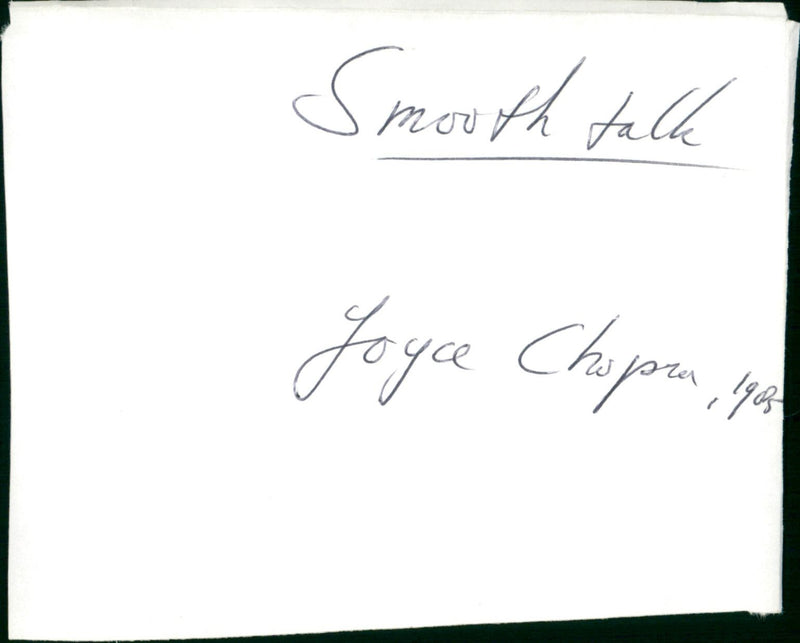 Smooth talk
Joyce Chopra, 1985